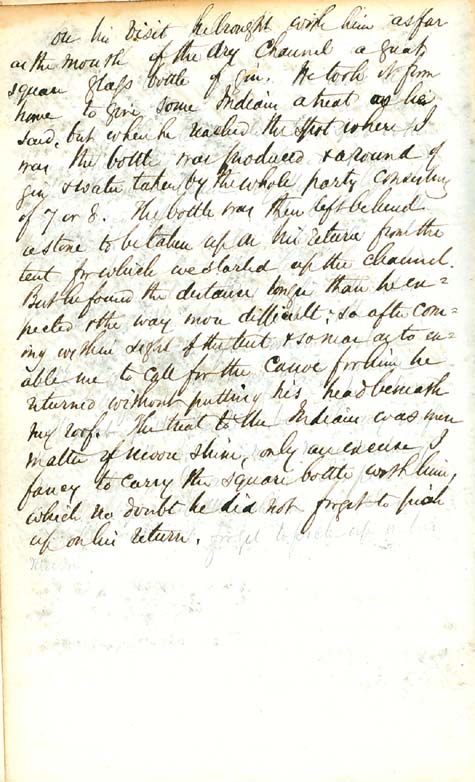 On his visit he brought with him as far
as the mouth of the dry Channel a great
square glass bottle of gin. He took it from
home to give some Indians a treat as he
said, but when he reached the spot where I
was the bottle was produced & a round of
gin & water taken by the whole party consisting
of 7 or 8. The bottle was then left behind
a stone to be taken up on his return from the
tent for which we started up the channel.
But he found the distance longer than he ex=
pected & the way more difficult; so after com=
ing within sight of the tent & so near as to en=
able me to call for the canoe for him he
returned without putting his head beneath
my roof. The treat to the Indians was mere
matter of moon shine, only an excuse I
fancy to carry the square bottle with him,
which no doubt he did not forget to pick
up on his return.